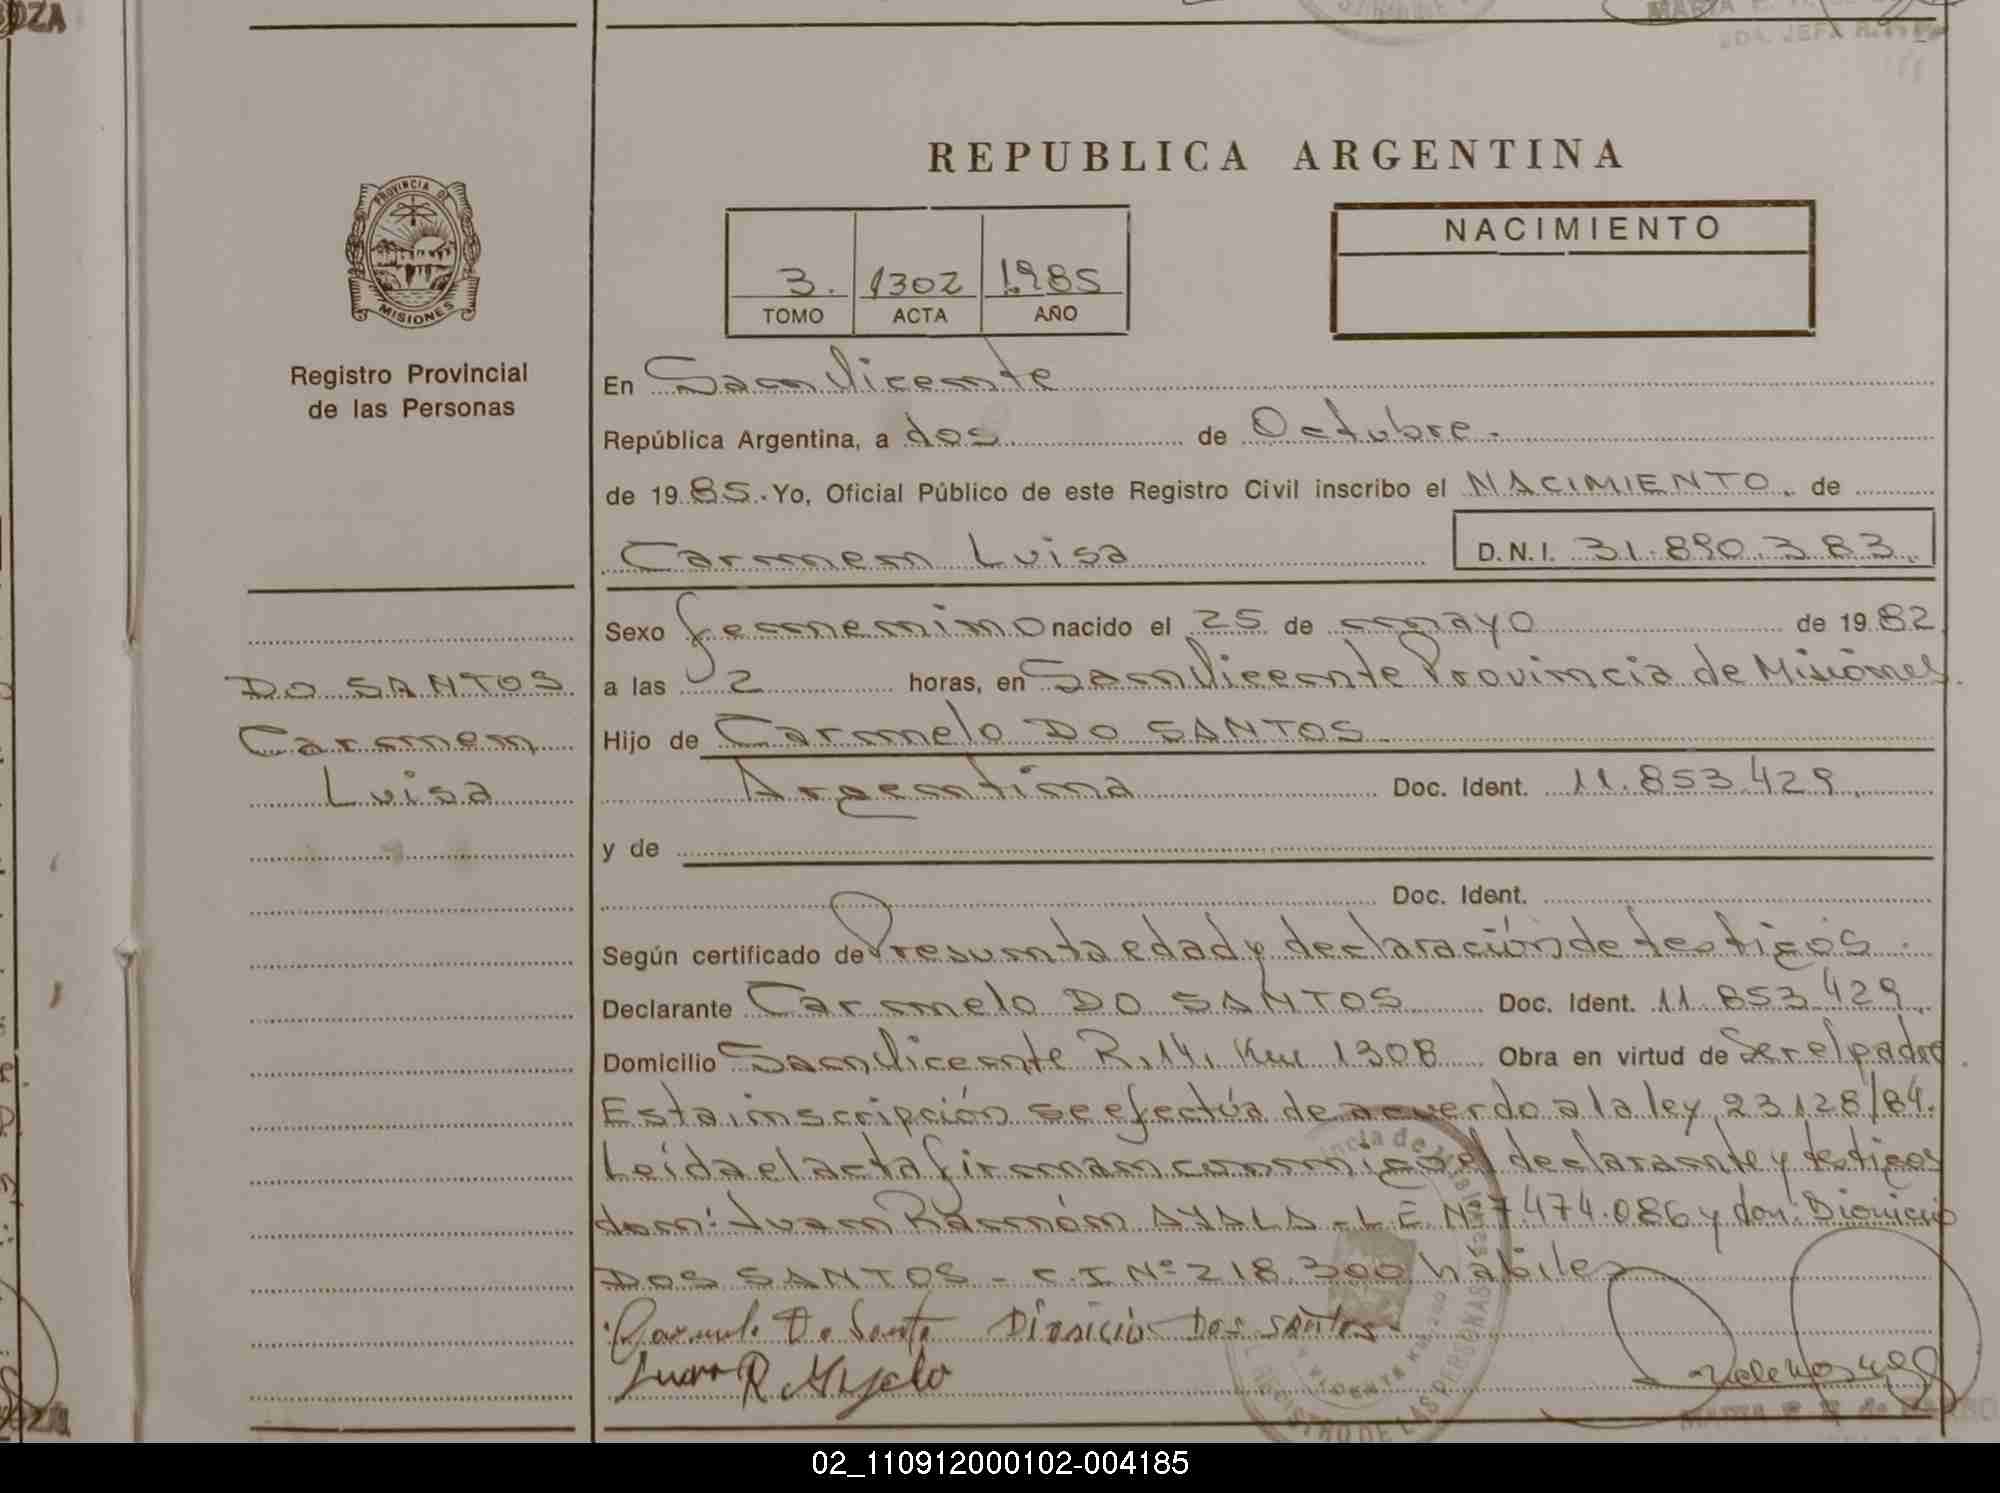 OZA
REPUBLICA ARGENTINA
PROVINCIA DE
MISIONES
Registro Provincial
de las Personas
3. 1302 1.985
TOMO ACTA AÑO
NACIMIENTO
En San Vicente
República Argentina, a dos de Octubre.
de 19 85. Yo, Oficial Público de este Registro Civil inscribo el NACIMIENTO. de
Carmen Luisa D.N.I. 31.890.383.
DO SANTOS
Carmen
Luisa
Sexo femenino nacido el 25 de mayo de 19 82
a las 2 horas, en San Vicente Provincia de Misiones.
Hijo de Carmelo DO SANTOS.
Argentina Doc. Ident. 11.853.429.
y de
Doc. Ident.
Según certificado de Presunta edad y declaración de testigos.
Declarante Carmelo DO SANTOS Doc. Ident. 11.853.429.
Domicilio San Vicente R.14. Km 1308 Obra en virtud de Ser el padre.
Esta inscripción se efectúa de acuerdo a la ley 23.128/84.
Leída el acta firman conmigo el declarante y testigos
don: Juan Ramón AYALA - L.E. Nº 7.474.086 y don: Dionicio
DOS SANTOS - C.I Nº 218.300 hábiles
Carmelo Do Santo Dionicio Dos santos
Juan R Ayala
REGISTRO DE LAS PERSONAS
02_110912000102-004185